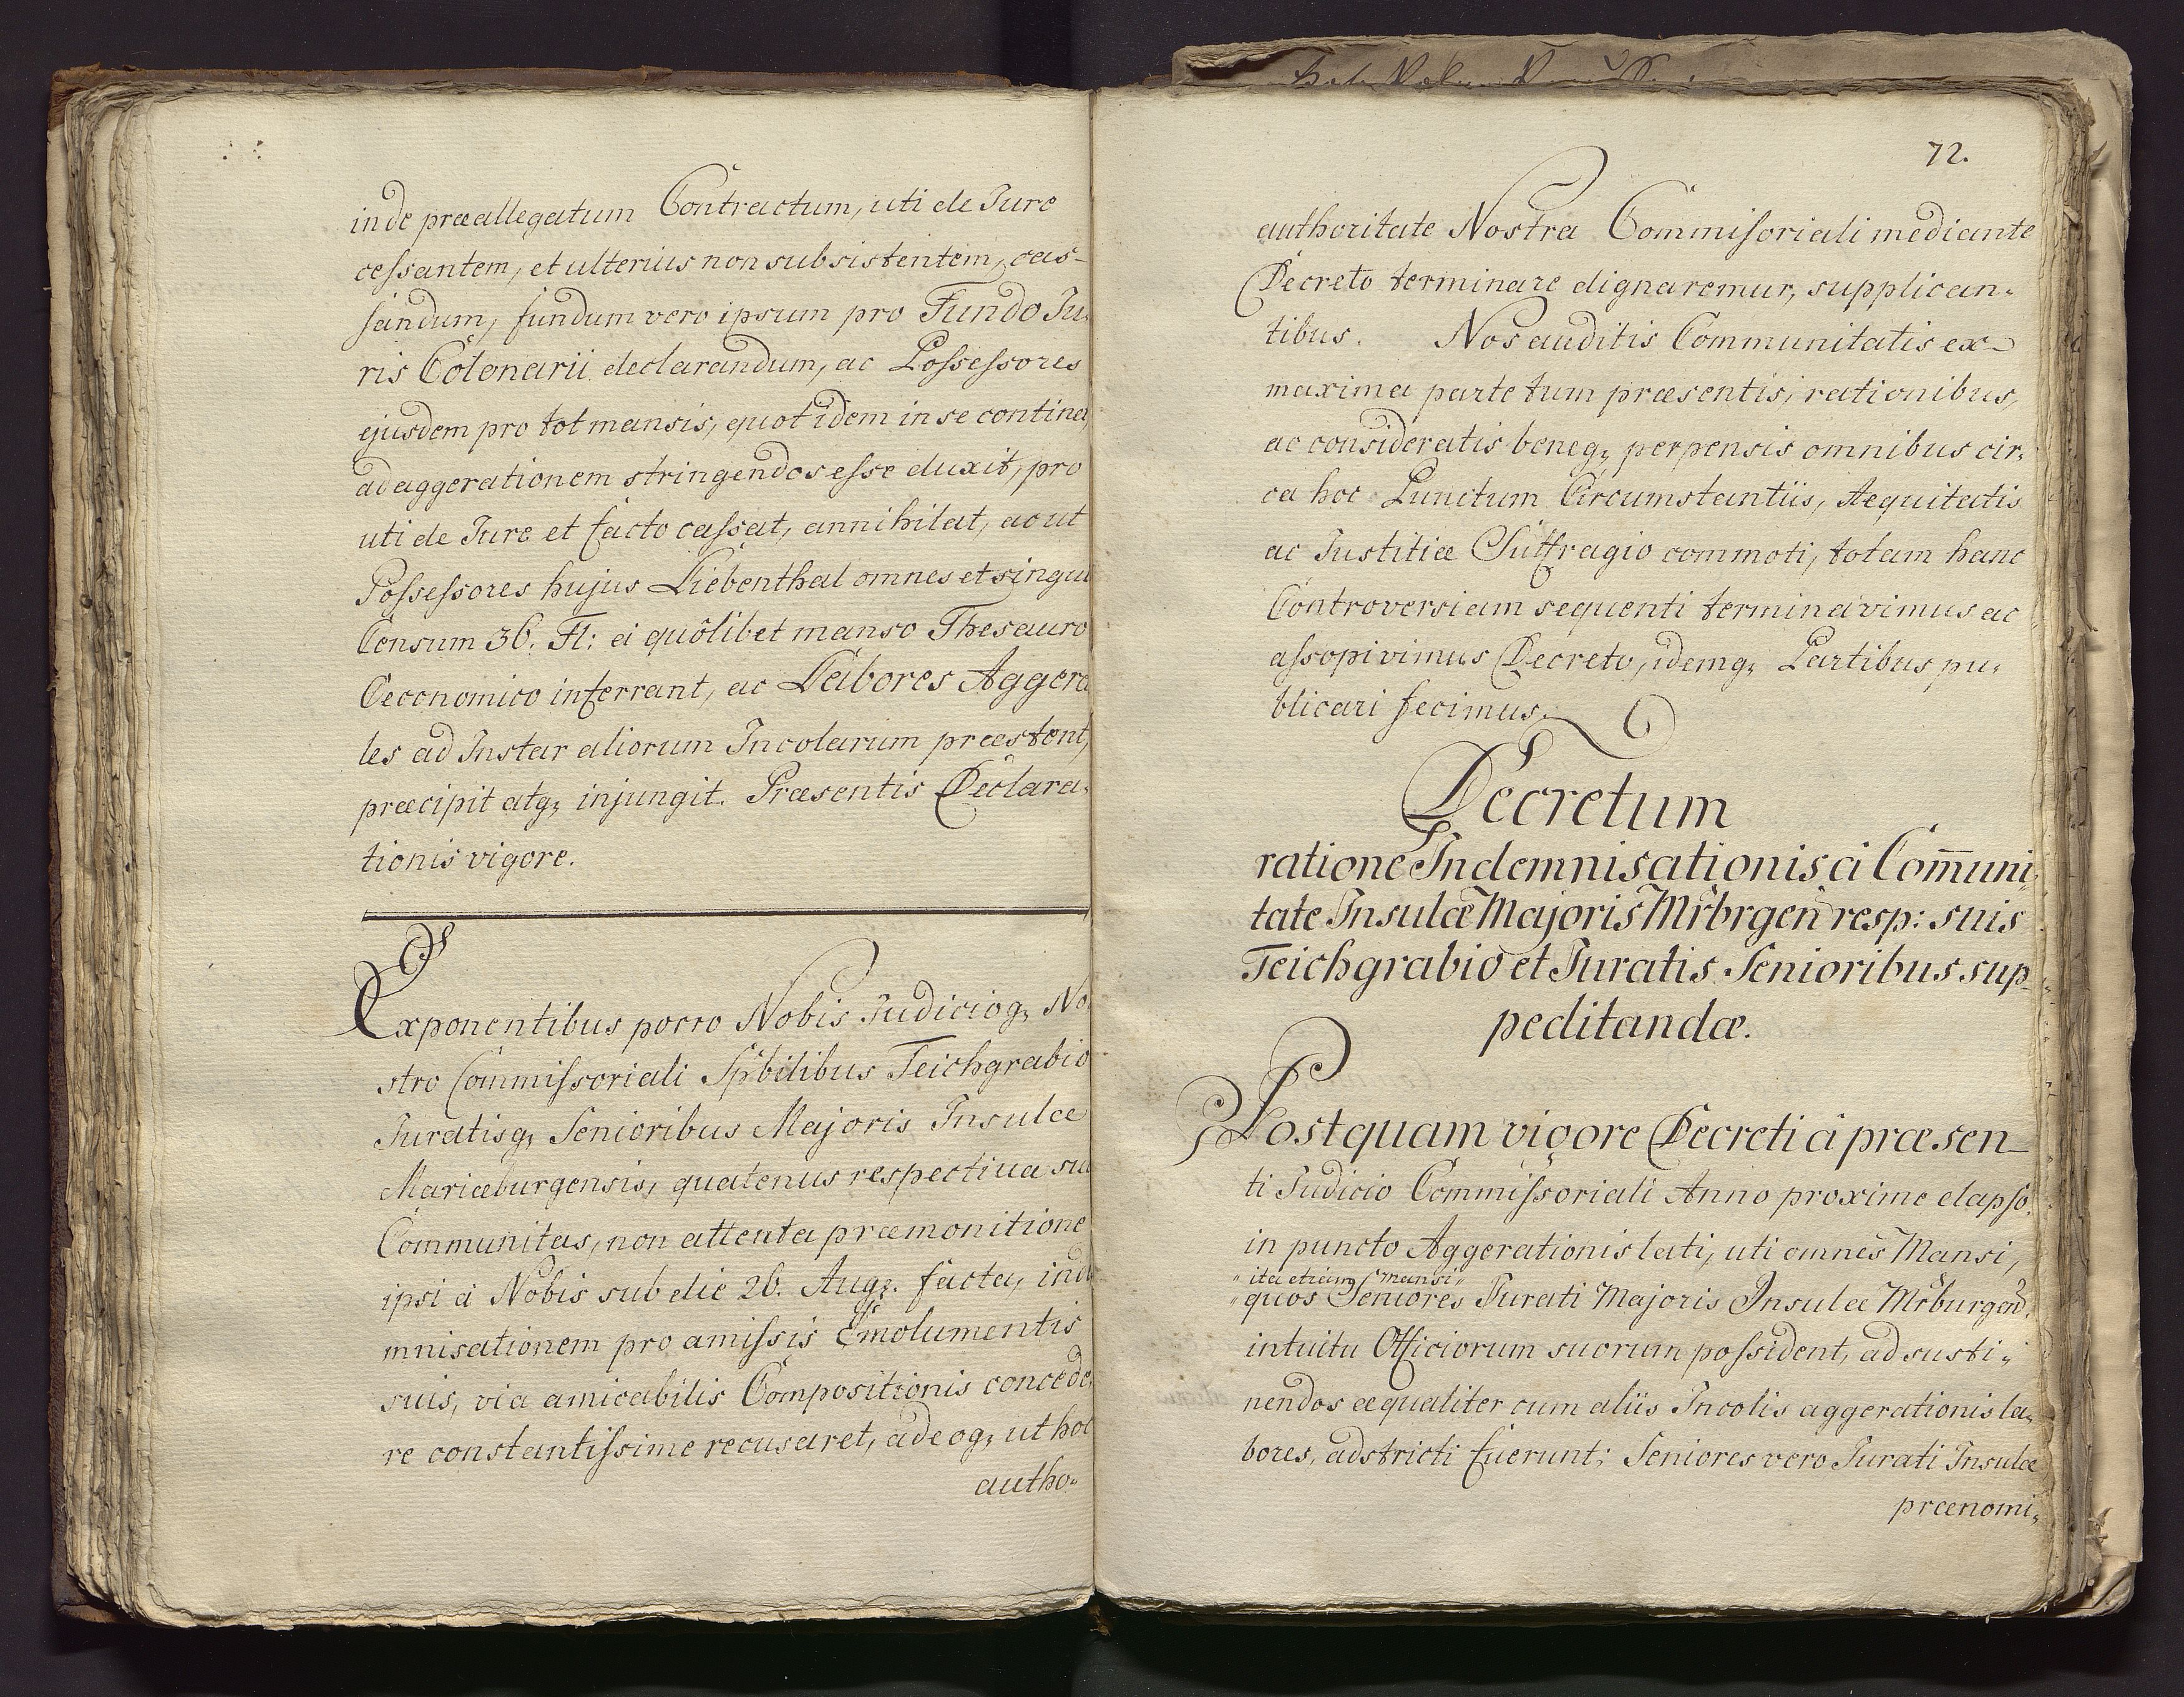 inde præallegatum Contractum, uti de Jure
cessantem, et ulterius non subsistentem, cas-
sandum, fundum vero ipsum pro Fundo Ju-
ris Colonarii declarandum, ac Possessores
ejusdem pro tot mansis, quot idem in se contine
ad aggerationem stringendos esse duxit, pro
uti de Jure et facto cassat, annihilat, ac ut
Possessores hujus Liebenthal omnes et singu
Censum 36. Fl: à quôlibet manso Thesauro
Oeconomico inferrant, ac Labores Aggera
les ad Instar aliorum Incolarum præstent,
præcipit atq; injungit. Præsentis Declara-
tionis vigore.
Exponentibus porro Nobis Judicioq; No
stro Commissoriali Spbilibus Teichgrabio
Juratisq; Senioribus Majoris Insulæ
Mariæburgensis, quatenus respectiva su
Communitas, non attenta præmonitione
ipsi à Nobis sub die 26. Aug;. facta, ind
mnisationem pro amissis Emolumentis
suis, via amicabilis Compositionis concede
re constantissime recusaret, adeoq; ut hoc
autho-
72.
authoritate Nostra Commissoriali mediante
Decreto terminare dignaremur, supplican-
tibus. Nos auditis Communitatis ex-
maxima parte tum præsentis, rationibus,
ac consideratis beneq; perpensis omnibus cir-
ca hoc Punctum Circumstantiis, Aequitatis
ac Justitiæ Suffragio commoti, totam hanc
Controversiam sequenti terminavimus ac
assopivimus Decreto, idemq; Partibus pu-
blicari fecimus.
Decretum
ratione Indemnisationis à Com̄uni-
tate Insulæ Majoris Mrbrgen resp: suis
Teichgrabio et Juratis Senioribus sup-
peditandæ.
Postquam vigore Decreti à præsen-
ti Judicio Commissoriali Anno proxime elapso
in puncto Aggerationis lati, uti omnes Mansi,
" ita etiam mansi "
" quos Seniores Jurati Majoris Insulæ Mrburgen.
intuitu Officiorum suorum possident, ad susti-
nendos æqualiter cum aliis Incolis aggerationis la-
bores, adstricti fuerunt; Seniores vero Jurati Insulæ
prænomi-